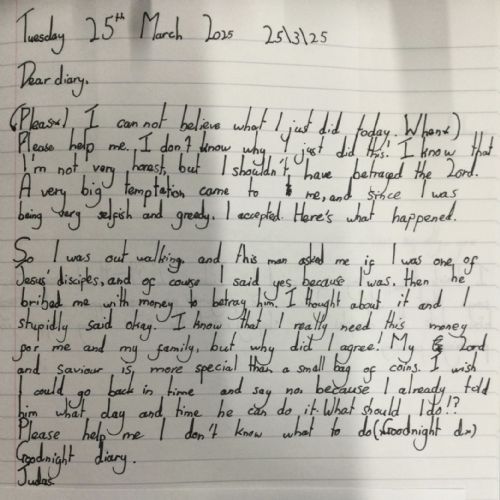 Tuesday 25th March 2025 25\3\25
Dear diary,
(Please*) I can not believe what I just did today. When*)
Please help me. I don't know why I just did this! I know that
I'm not very honest, but I shouldn't have betrayed the Lord.
A very big temptation came to me, and since I was
being very selfish and greedy, I accepted. Here's what happened.
So I was out walking, and this man asked me if I was one of
Jesus' disciples, and of course I said yes because I was, then he
bribed me with money to betray him. I thought about it and I
stupidly said okay. I know that I really need this money
for me and my family, but why did I agree! My Lord
and saviour is, more special than a small bag of coins. I wish
I could go back in time and say no, because I already told
him what day and time he can do it. What should I do!?
Please help me I don't know what to do (xGoodnight dx)
Goodnight diary.
Judas